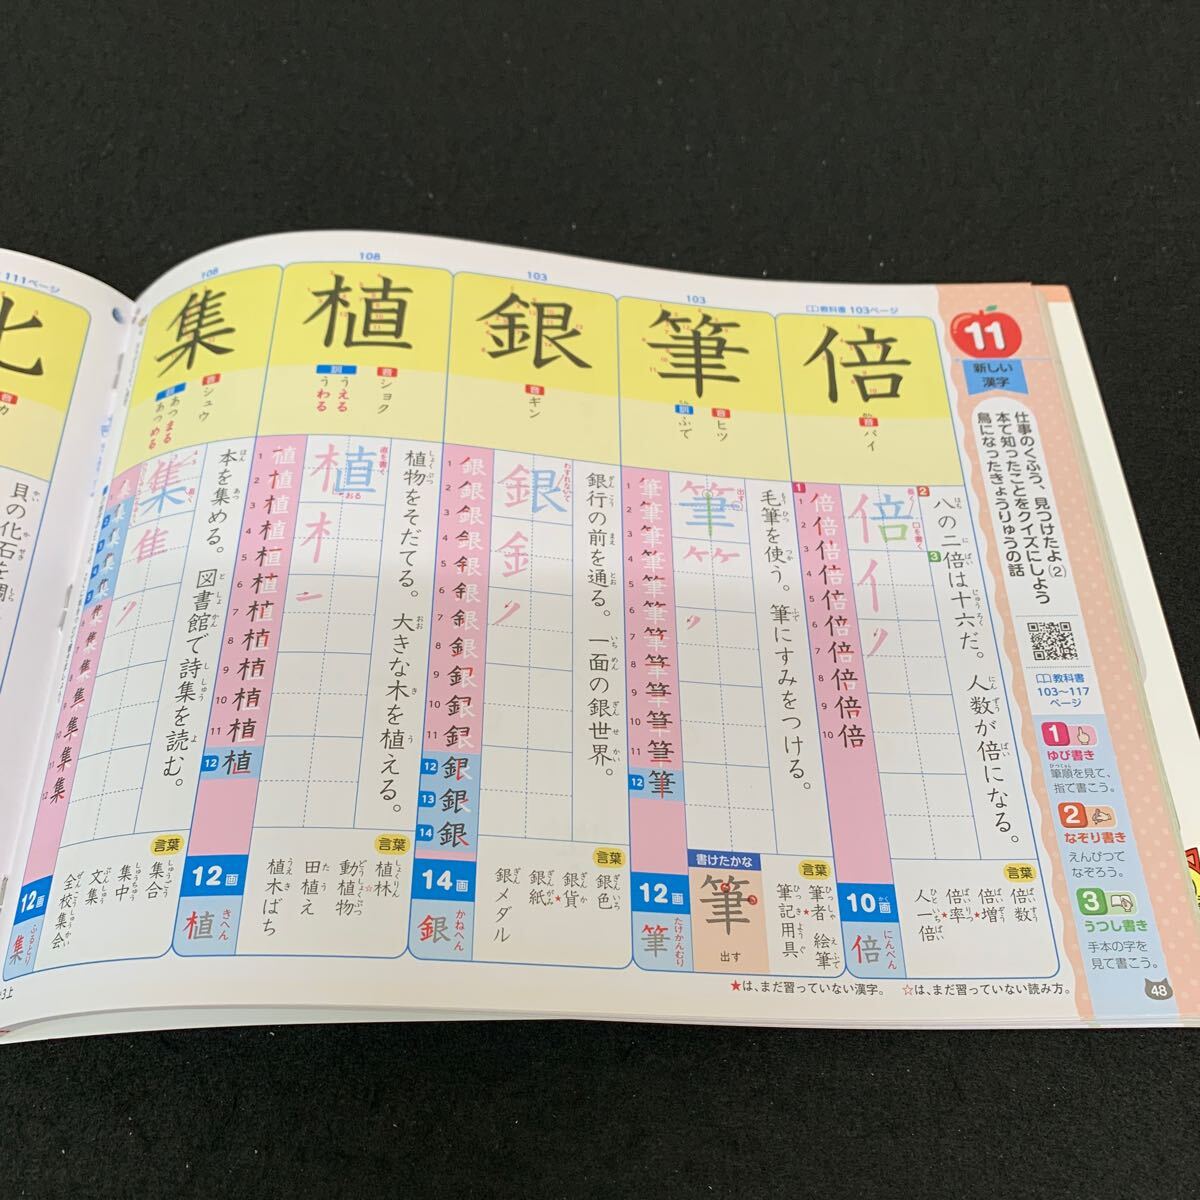 11
新しい
漢字
仕事のくふう、見つけたよ(2)
本で知ったことをクイズにしよう
鳥になったきょうりゅうの話
教科書
103〜117
ページ
1
ゆび書き
筆順を見て、
指で書こう。
2
なぞり書き
えんぴつで
なぞろう。
3
うつし書き
手本の字を
見て書こう。
48
教科書 103ページ
倍
音 バイ
八の二倍は十六だ。人数が倍になる。
1 2 3 4 5 6 7 8 9 10
10画
倍 にんべん
言葉
倍数
倍増★
倍率★
人一倍
103
筆
音 ヒツ
訓 ふで
出す
毛筆を使う。筆にすみをつける。
1 2 3 4 5 6 7 8 9 10 11 12
12画
筆 たけかんむり
書けたかな
筆
出す
言葉
筆者 絵筆
筆記用具
103
銀
音 ギン
わすれないで
銀行の前を通る。一面の銀世界。
1 2 3 4 5 6 7 8 9 10 11 12 13 14
14画
銀 かねへん
言葉
銀色
銀貨★
銀紙
銀メダル
108
植
音 ショク
訓 うえる
うわる
直を書く
おる
植物をそだてる。大きな木を植える。
1 2 3 4 5 6 7 8 9 10 11 12
12画
植 きへん
言葉
植林
動植物☆
田植え
植木ばち
108
集
音 シュウ
訓 あつまる
あつめる
長く
本を集める。図書館で詩集を読む。
12画
集 ふるとり
言葉
集合
集中
文集
全校集会
111ページ
貝の化石を
★は、まだ習っていない漢字。 ☆は、まだ習っていない読み方。